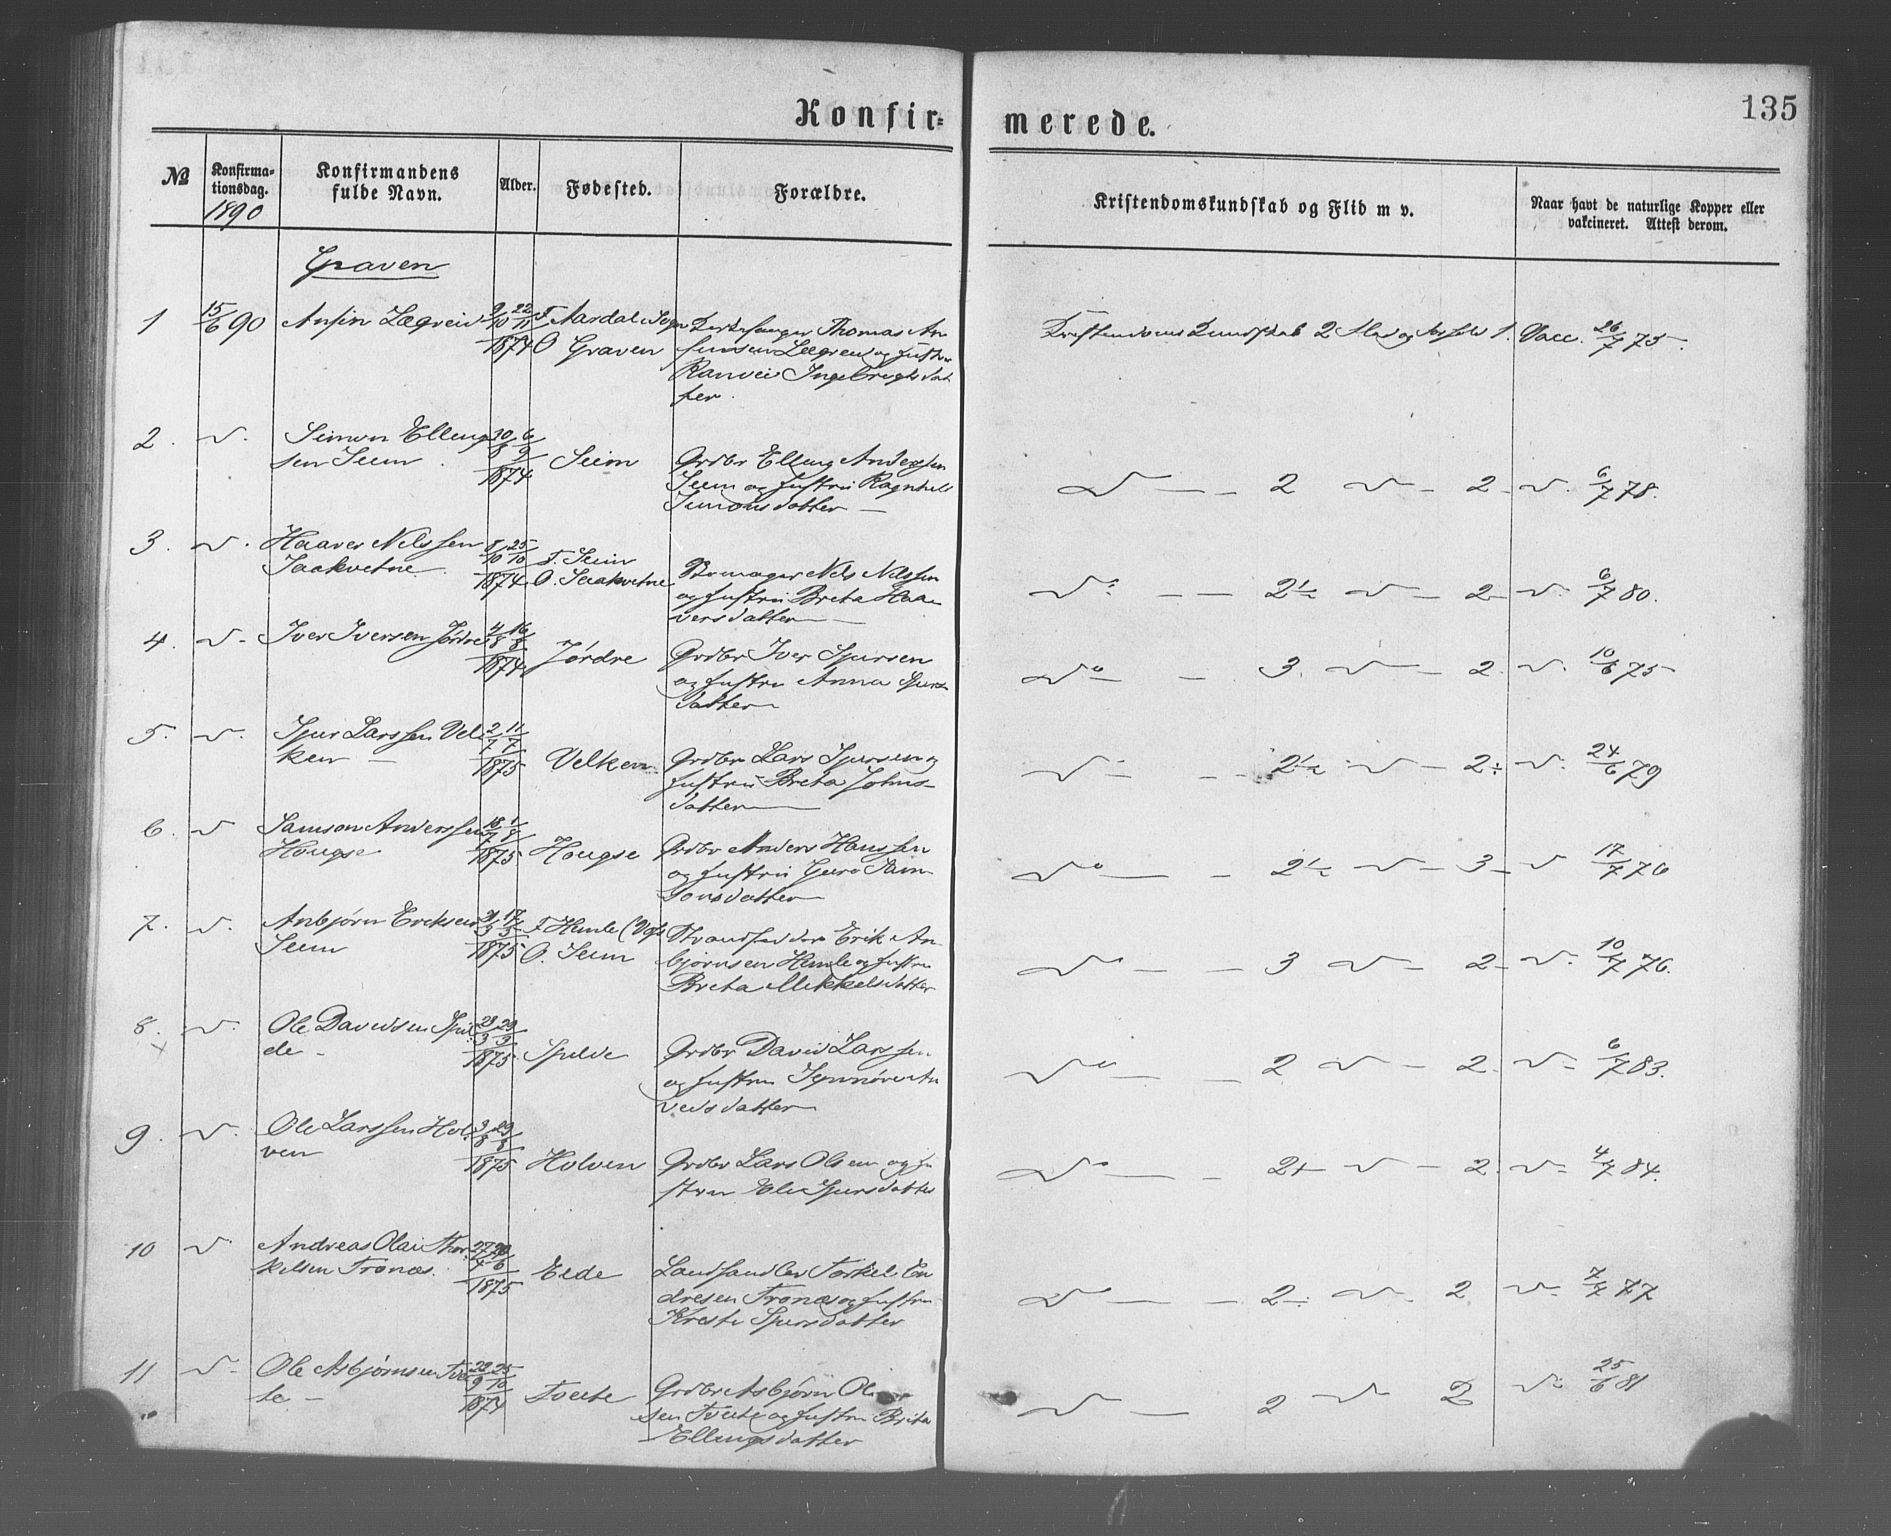 Konfir-
merede.
135
No
Konfirma-
tionsdag.
1890
Konfirmandens
fulde Navn.
Alder.
Fødested.
Forældre.
Kristendomskundskab og Flid m v.
Naar havt de naturlige Kopper eller
vakcineret. Attest derom.
Graven
1 15/6 90 Ansin Lægreid 9/10 22/11 1874 F. Aardal Sogn
O Graven
Kirkesanger Thomas An
sinsen Lægreid og Hustru
Ranvei Ingebrigtsdat
ter.
Kristendoms Kundskab 2 Flid og Forhold 1. Vacc. 26/7 75.
2. v. Simon Elling
sen Seim 30/8 6/9 1874 Seim
Grdbr Elling Anderssen
Seim og Hustru Ragnhild
Simonsdatter
v 2 v 2 v. 6/7 78.
3. v. Haaver Nilssen
Saakvetne 8/10 25/10 1874 F. Seim
O. Saakvetne
Nils Nilssen
og Hustru Brita Haa
versdatter
v 2½ v 2 v. 6/7 80.
4. v. Iver Iversen Jørdre 4/8 16/8 1874 Jørdre
Grdbr Iver Sjursen
og Hustru Anna Sjurs
datter
v 3 v 2 v. 10/6 75
5. v. Sjur Larssen Vel
ken 2/7 11/7 1875 Velken
Grdbr Lars Sjursen og
Hustru Brita Johns
datter
v 2½ v 2÷ v. 24/6 79
6. v Samson Anderssen
Hougse 18/7 1/8 1875 Hougse
Grdbr Anders Hanssen
og Hustru Guro Sam
sonsdatter
v 2½ v 3 v 17/7 76
7. v. Anbjørn Eriksen
Seim 17/3 1875 F Hemle (Voss
O. Seim
Strandsidder Erik An
bjørnsen Hemle og Hustru
Brita Mikkelsdatter
v 3 v 2 v. 10/7 76.
8. v. Ole Davidsen Spil
de 28/3 29/3 1875 Spilde
Grdbr David Larssen
og Hustru Synnøve Ar
veds datter
v 2 v 2. v 6/7 83.
9. v. Ole Larssen Hol
ven 3/8 29/8 1875 Holven
Grdbr Lars Olsen og Hu
stru Eli Sjursdatter
v 2+ v 2. v 4/7 84.
10 v Andreas Olai Thor
kilsen Tronæs. 27/4 20/6 1875 Eide
Landhandler Torkel En
dresen Tronæs og Hustru
Kristi Sjursdatter
v 2÷ v 2 v 7/7 77
11 v Ole Asbjørnsen Tvei
te 22/9 25/10 1874 Tveite
Grdbr Asbjørn Ol
sen Tveite og Hustru Brita
Ellingsdatter
v 2 v 2 v 25/6 81